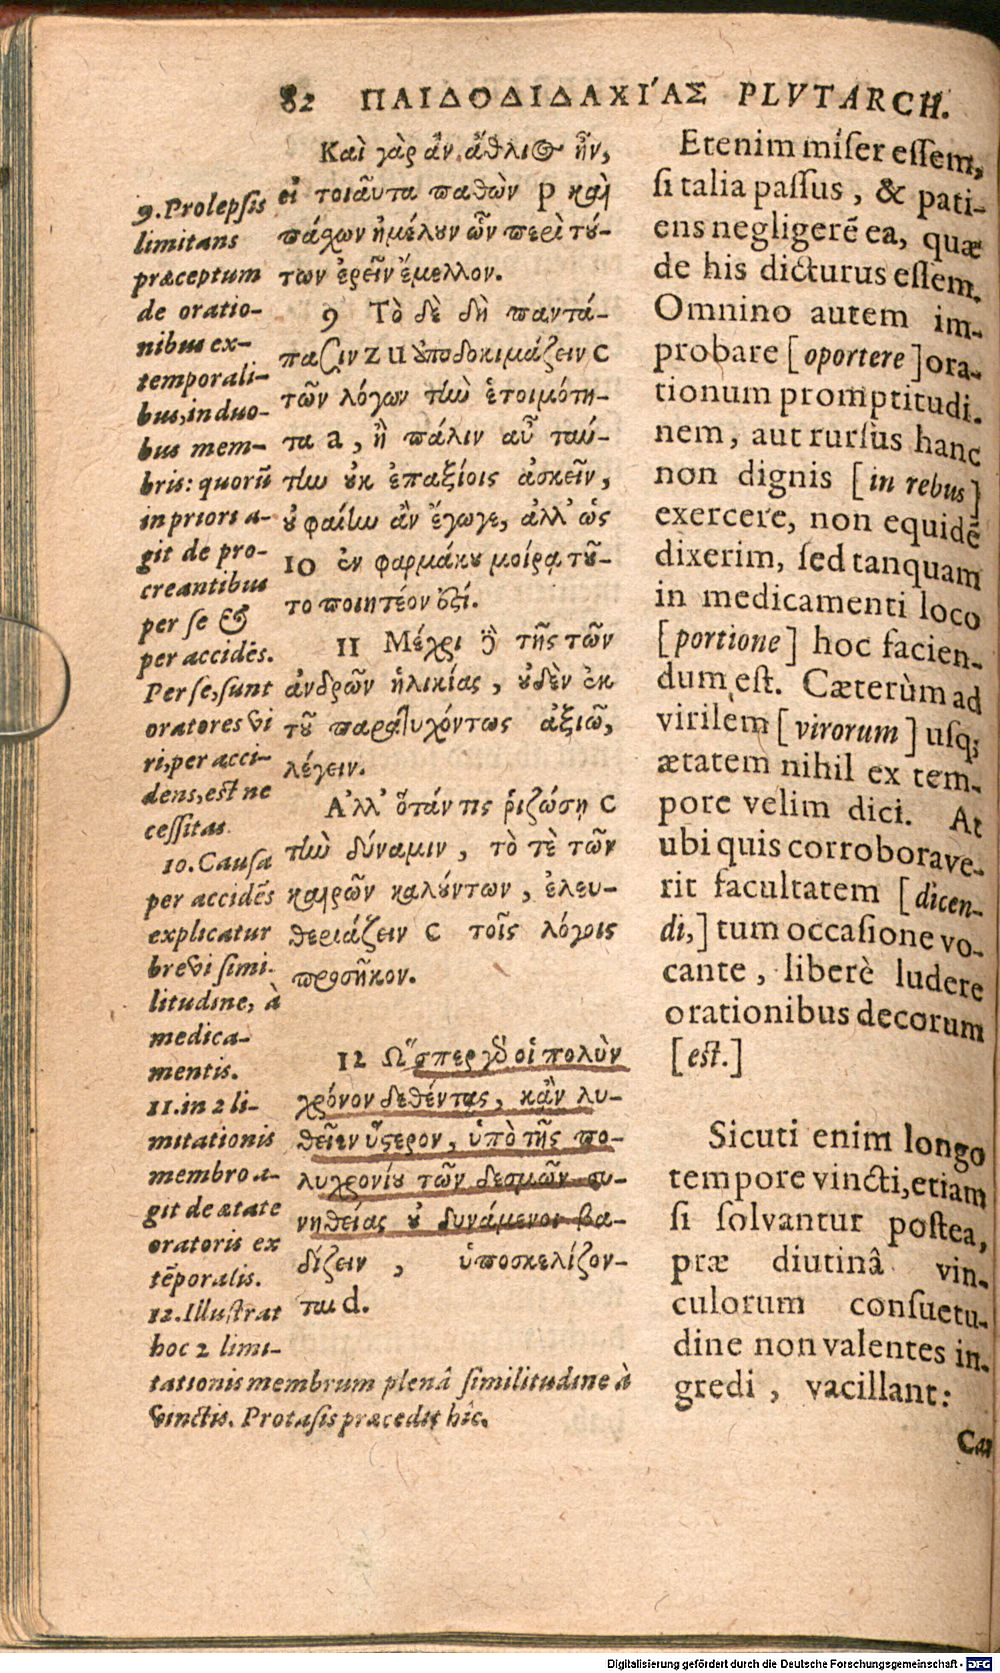 82 ΠΑΙΔΟΔΙΔΑΧΙΑΣ PLVTARCH.
9. Prolepsis
limitans
præceptum
de oratio-
nibus ex-
temporali-
bus, in duo-
bus mem-
bris: quorũ
in priori a-
git de pro-
creantibus
per se &
per accidẽs.
Per se, sunt
oratores vi
ri, per acci-
dens, est ne
cessitas.
10. Causa
per accidẽs
explicatur
brevi simi-
litudine, à
medica-
mentis.
11. in 2 li-
mitationis
membro a-
git de ætate
oratoris ex
tẽporalis.
12. Illustrat
hoc 2 limi-
tationis membrum plenâ similitudine à
vinctis. Protasis præcedit hîc.
Καὶ γὰρ ἂν ἄθλιος ἦν,
εἰ τοιαῦτα παθὼν p καὶ
πάχων ἠμέλουν ὧν περὶ τού-
των ἐρεῖν ἔμελλον.
9 Τὸ δὲ δὴ παντά-
πασιν z u ὑποδοκιμάζειν c
τῶν λόγων τὴν ἑτοιμότη-
τα a, ἢ πάλιν αὖ ταύ-
την οὐκ ἐπαξίοις ἀσκεῖν,
οὐ φαίην ἂν ἔγωγε, ἀλλ' ὡς
10 ἐν φαρμάκου μοίρᾳ τοῦ-
το ποιητέον ἐστί.
11 Μέχρι δὲ τῆς τῶν
ἀνδρῶν ἡλικίας, οὐδὲν ἐκ
τοῦ παρατυχόντως ἀξιῶ,
λέγειν.
Αλλ' ὅτάν τις ῥιζώσῃ c
τὴν δύναμιν, τὸ τὲ τῶν
καιρῶν καλούντων, ἐλευ-
θεριάζειν c τοῖς λόγοις
προσῆκον.
12 Ωσπερ γὰρ οἱ πολὺν
χρόνον δεθέντες, κἂν λυ-
θεῖεν ὕστερον, ὑπὸ τῆς πο-
λυχρονίου τῶν δεσμῶν συ-
νηθείας οὐ δυνάμενοι βα-
δίζειν, ὑποσκελίζον-
ται d.
Etenim miser essem,
si talia passus, & pati-
ens negligerẽ ea, quæ
de his dicturus essem.
Omnino autem im-
probare [oportere] ora-
tionum promptitudi-
nem, aut rursùs hanc
non dignis [in rebus]
exercere, non equidẽ
dixerim, sed tanquam
in medicamenti loco
[portione] hoc facien-
dum est. Cæterùm ad
virilem [virorum] usq;
ætatem nihil ex tem-
pore velim dici. At
ubi quis corroborave-
rit facultatem [dicen-
di,] tum occasione vo-
cante, liberè ludere
orationibus decorum
[est.]
Sicuti enim longo
tempore vincti, etiam
si solvantur postea,
præ diutinâ vin-
culorum consuetu-
dine non valentes in-
gredi, vacillant:
Digitalisierung gefördert durch die Deutsche Forschungsgemeinschaft - DFG